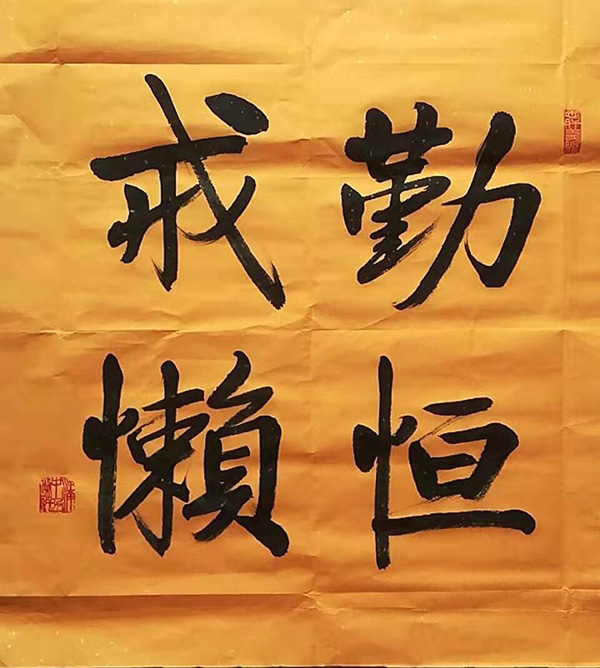 勤恒
戒懒